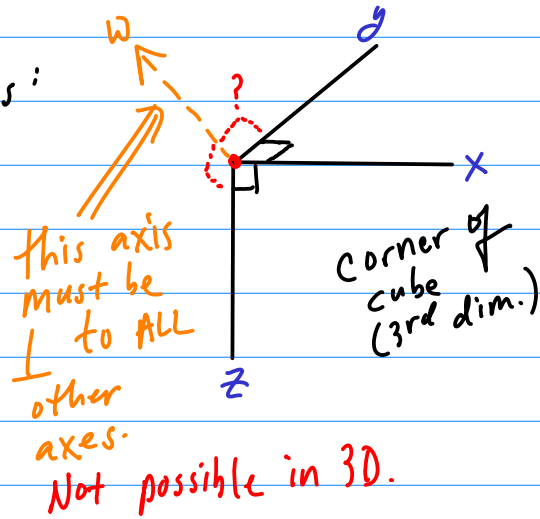 w
y
s:
?
x
this axis
must be
⊥ to ALL
other
axes.
corner of
cube
(3rd dim.)
z
Not possible in 3D.